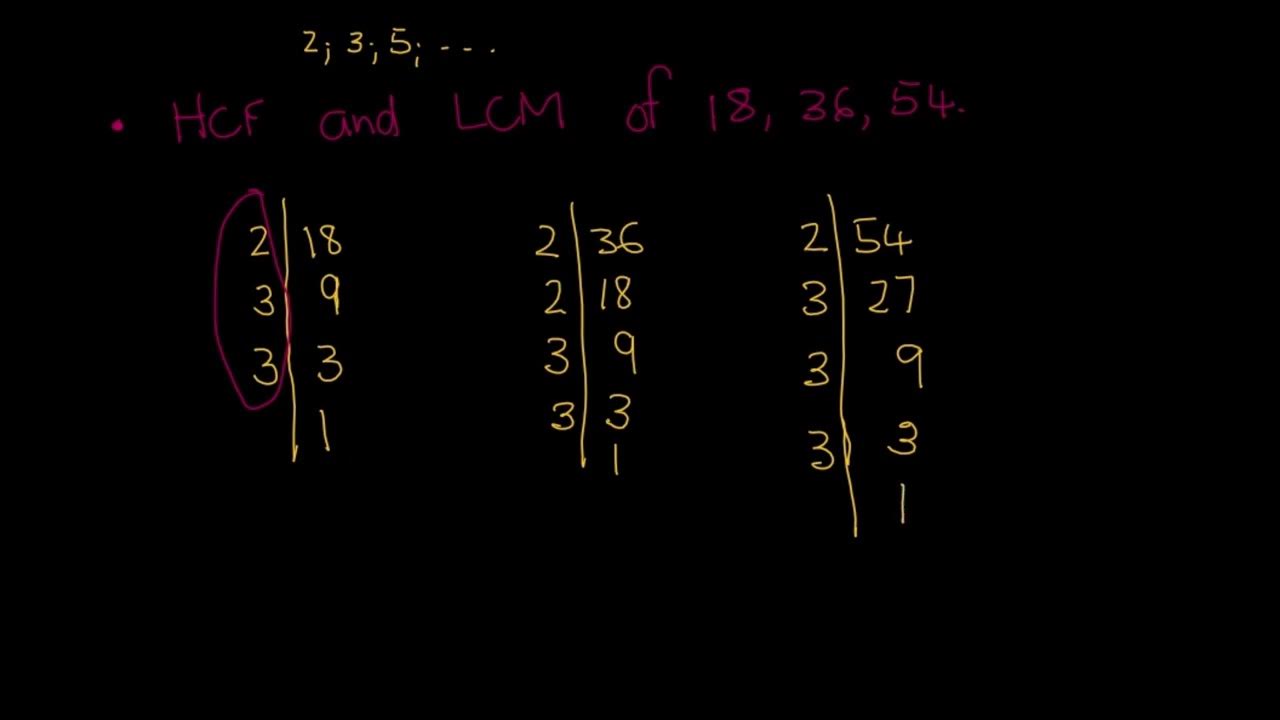 2; 3; 5; - - - .
• HCF and LCM of 18, 36, 54.
2 | 18
3 | 9
3 | 3
1
2 | 36
2 | 18
3 | 9
3 | 3
1
2 | 54
3 | 27
3 | 9
3 | 3
1